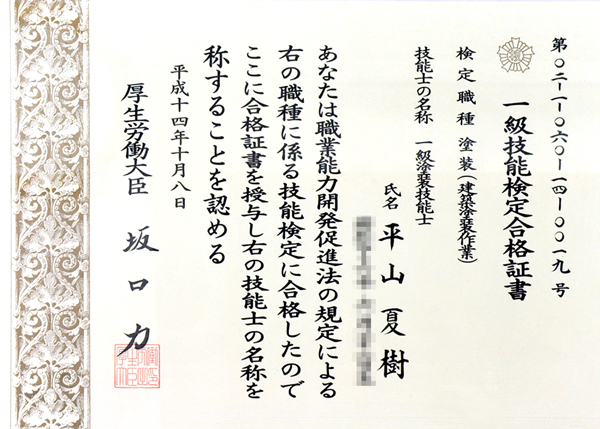 第〇二-一-〇六〇-一四-〇〇一九号
一級技能検定合格証書
検定職種 塗装(建築塗装作業)
技能士の名称 一級塗装技能士
氏名 平山夏樹
あなたは職業能力開発促進法の規定による
右の職種に係る技能検定に合格したので
ここに合格証書を授与し右の技能士の名称を
称することを認める
平成十四年十月八日
厚生労働大臣 坂口力